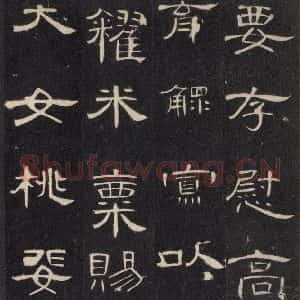 要存慰高
育鰥寡以
糴米粟賜
大女桃婓
Shufawang.CN